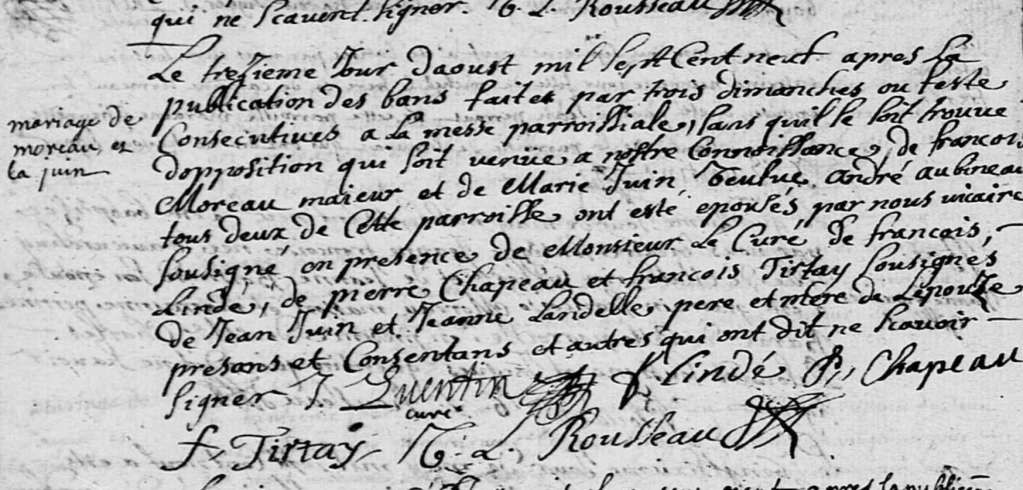 qui ne scavent signer. G. L. Rousseau
Le trezieme Jour daoust mil sept Cent neuf apres la
publication des bans faites par trois dimanches ou feste
mariage de
moreau et
la juin
Consecutives a la messe parroissiale, sans quil le soit trouvé
dopposition qui soit venüe a nostre Connoissance, de francois
Moreau majeur et de Marie Juin, veufve andré aubineau
tous deux de Cette parroisse ont esté epousés par nous vicaire
sousigné en presence de Monsieur Le Curé de francois,
Lindé, de pierre Chapeau et francois Tirtay sousignés
de Jean Juin et Jeanne Landelle pere et mere de Lepouse
presans et Consentans et autres qui ont dit ne scavoir
signer J. Quentin f Lindé P. Chapeau
curé
f. Tirtay G. L. Rousseau
apres la